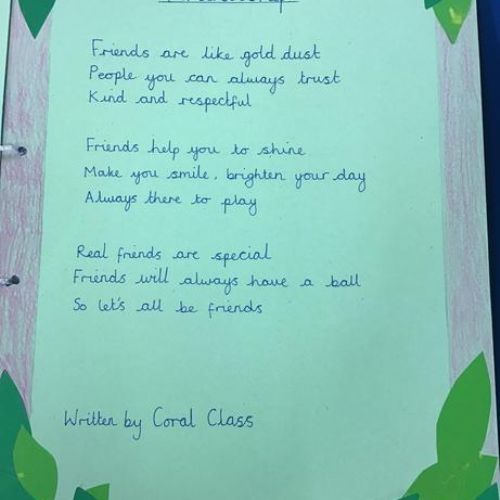 Friends are like gold dust
People you can always trust
Kind and respectful
Friends help you to shine
Make you smile, brighten your day
Always there to play
Real friends are special
Friends will always have a ball
So let's all be friends
Written by Coral Class